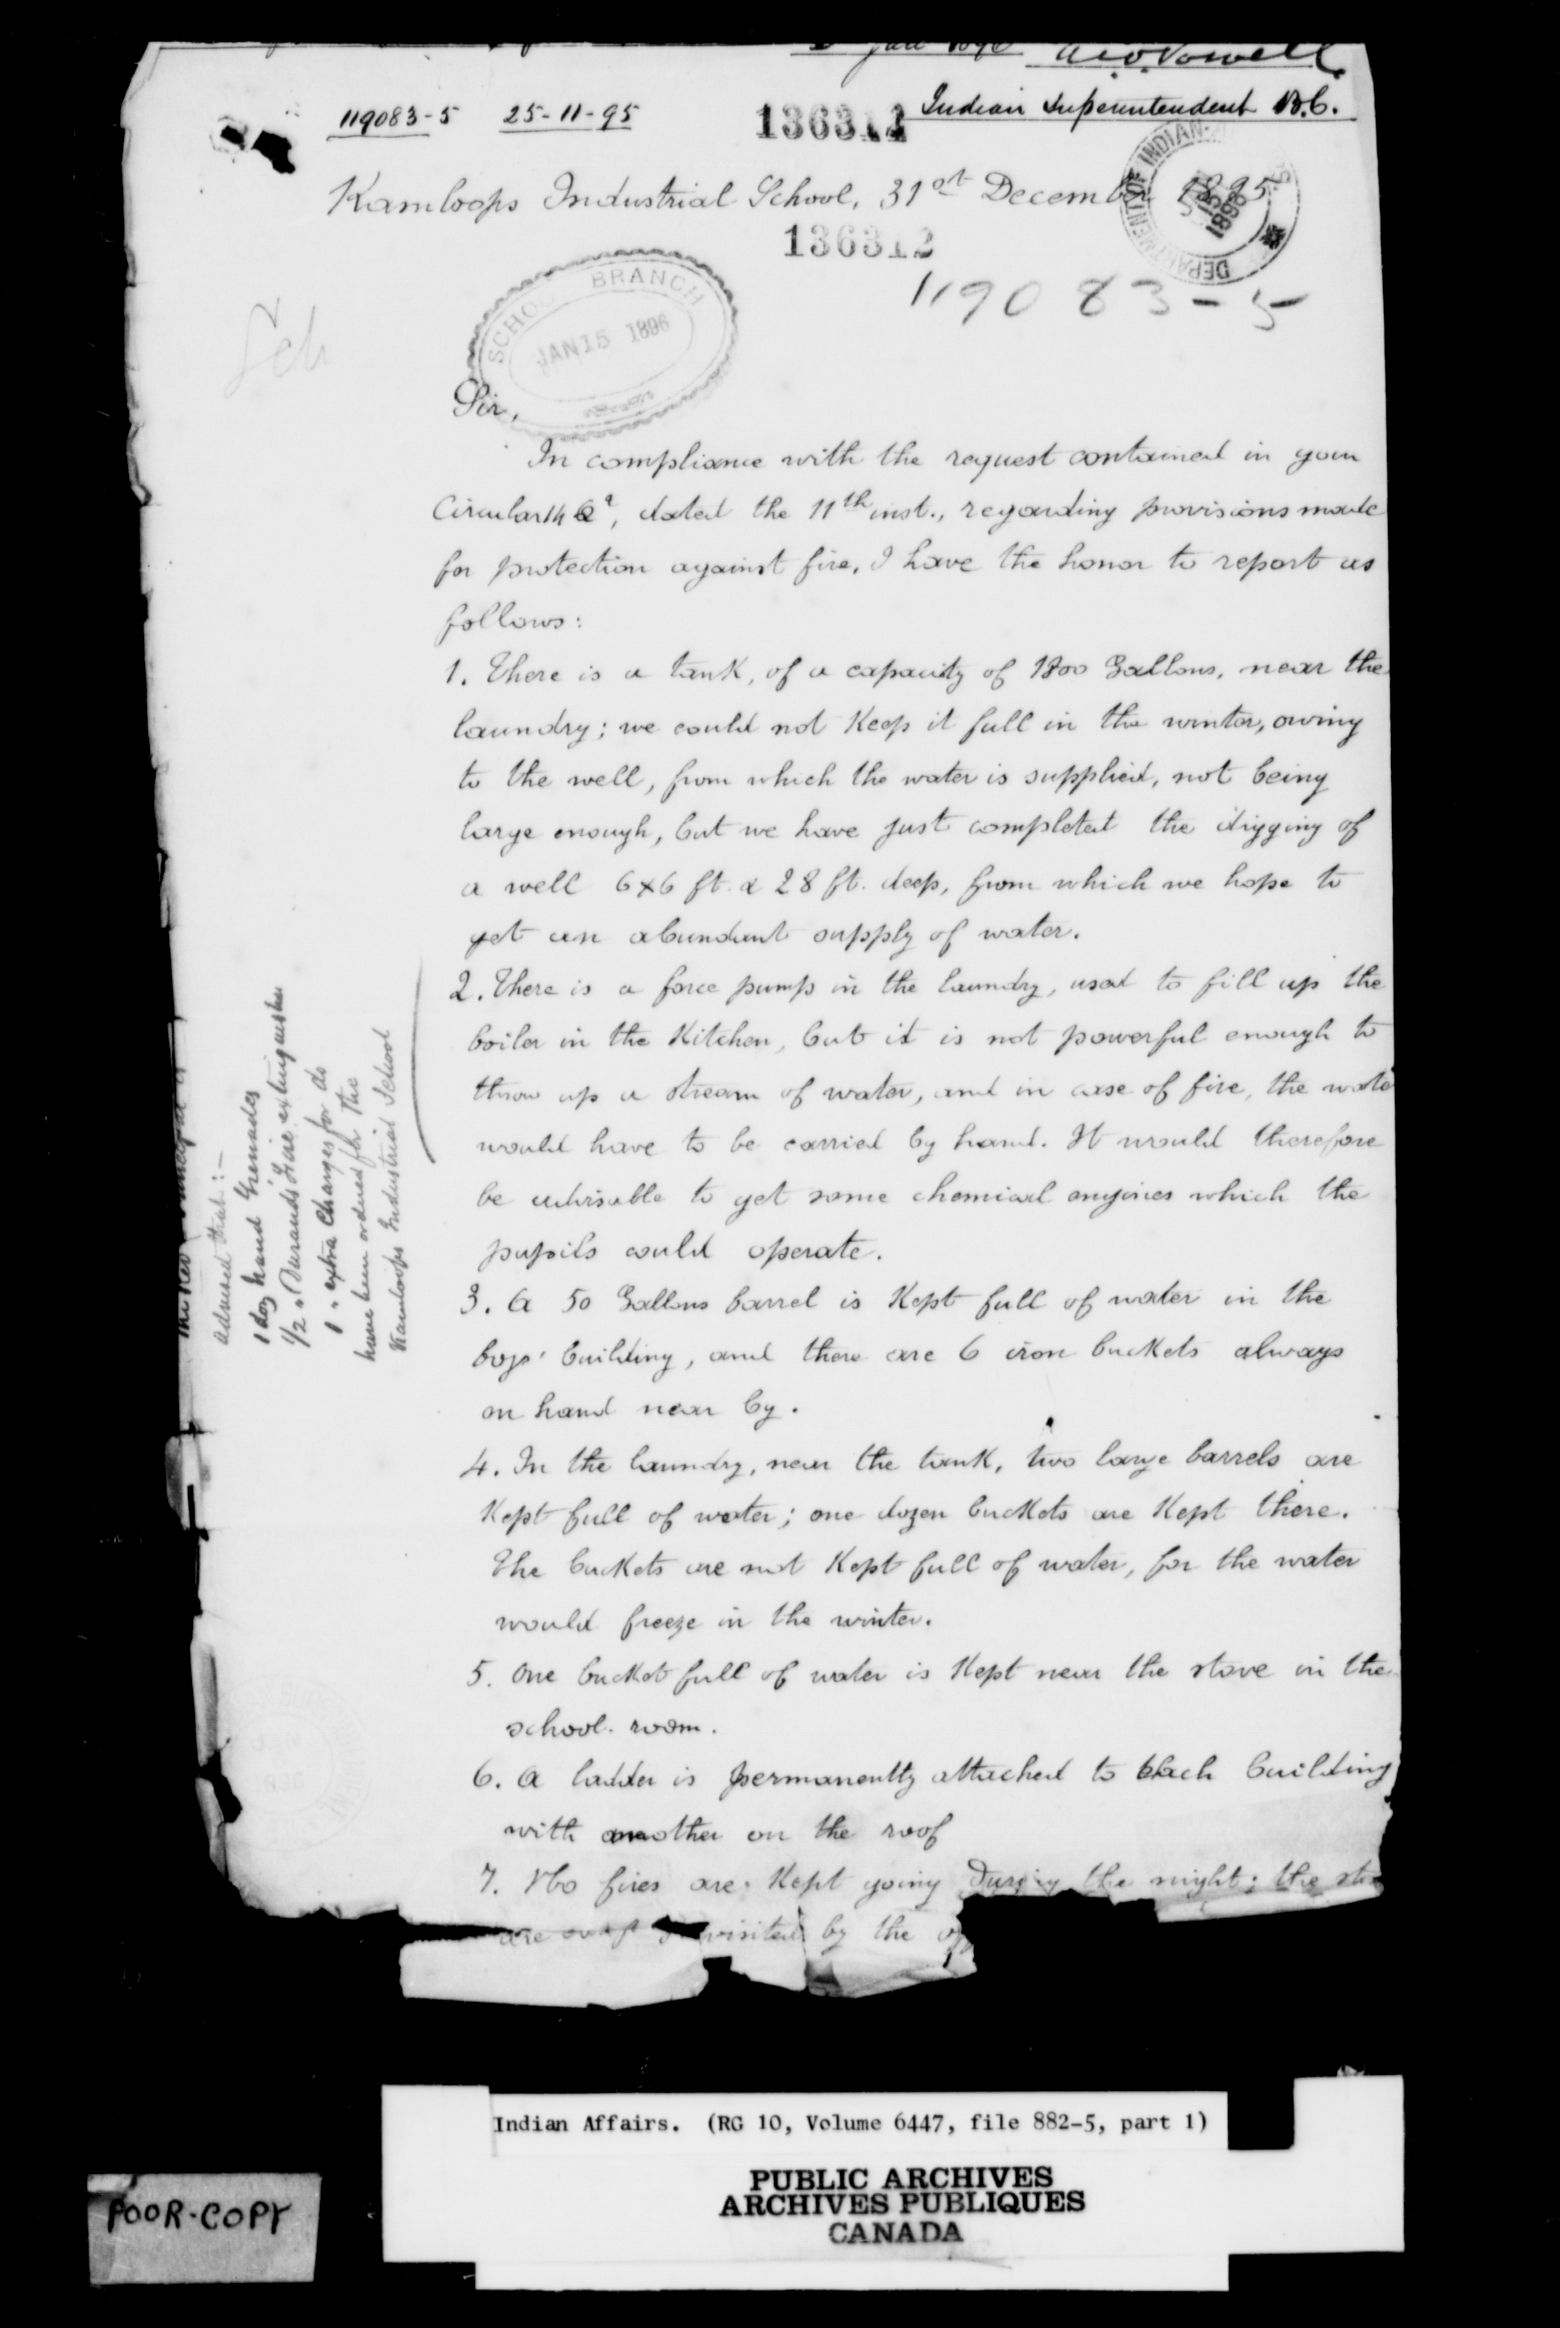 Jan 1896 Powell
Indian Superintendent B.C.
119083-5 25-11-95 136312
Kamloops Industrial School, 31st December 1895
DEPARTMENT OF INDIAN 1896
136312
119083-5
SCHOOL BRANCH
JAN 15 1896
Sch
Sir,
In compliance with the request contained in your
Circular, dated the 11th inst., regarding provisions made
for protection against fire, I have the honor to report as
follows:
1. There is a tank, of a capacity of Gallons, near the
laundry; we could not Keep it full in the winter, owing
to the well, from which the water is supplied, not being
large enough, but we have just completed the digging of
a well 6x6 ft. x 28 ft. deep, from which we hope to
get an abundant supply of water.
2. There is a force pump in the laundry, used to fill up the
boiler in the Kitchen, but it is not powerful enough to
throw up a stream of water, and in case of fire, the wate
would have to be carried by hand. It would therefore
be advisable to get some chemical engines which the
pupils could operate.
3. A 50 Gallons barrel is Kept full of water in the
boys' building, and there are 6 iron buckets always
on hand near by.
4. In the laundry, near the tank, two large barrels are
Kept full of water; one dozen buckets are Kept there.
The buckets are not Kept full of water, for the water
would freeze in the winter.
5. One bucket full of water is Kept near the stove in the
school-room.
6. A ladder is permanently attached to each building
with another on the roof
7. No fires are Kept going During the night; the sto
are visited by the
advised that:-
1 doz hand Grenades
1/2 " Durands Fire extinguisher
1 " extra Charges for do
have been ordered for the
Kamloops Industrial School
Indian Affairs. (RG 10, Volume 6447, file 882-5, part 1)
PUBLIC ARCHIVES
ARCHIVES PUBLIQUES
CANADA
POOR-COPY